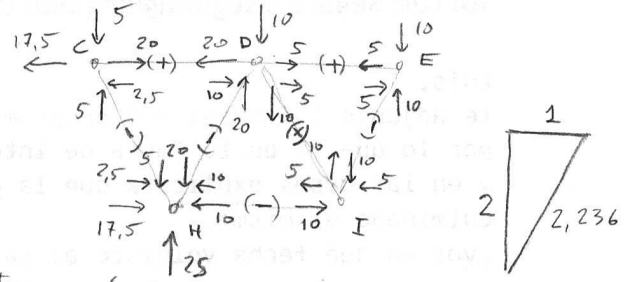 5 10 10
17,5 C 20 (+) 20 D 5 (+) 5 E
2,5 10 5 5 10
5 20 10
(-) (-) (x) (-)
5 20 10 10
2,5 10 5 5
17,5 H 10 (-) 10 I
25
1
2
2,236